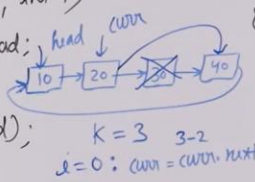 ad; head curr
10 20 30 40
d);
K = 3 3-2
i=0: curr = curr. next